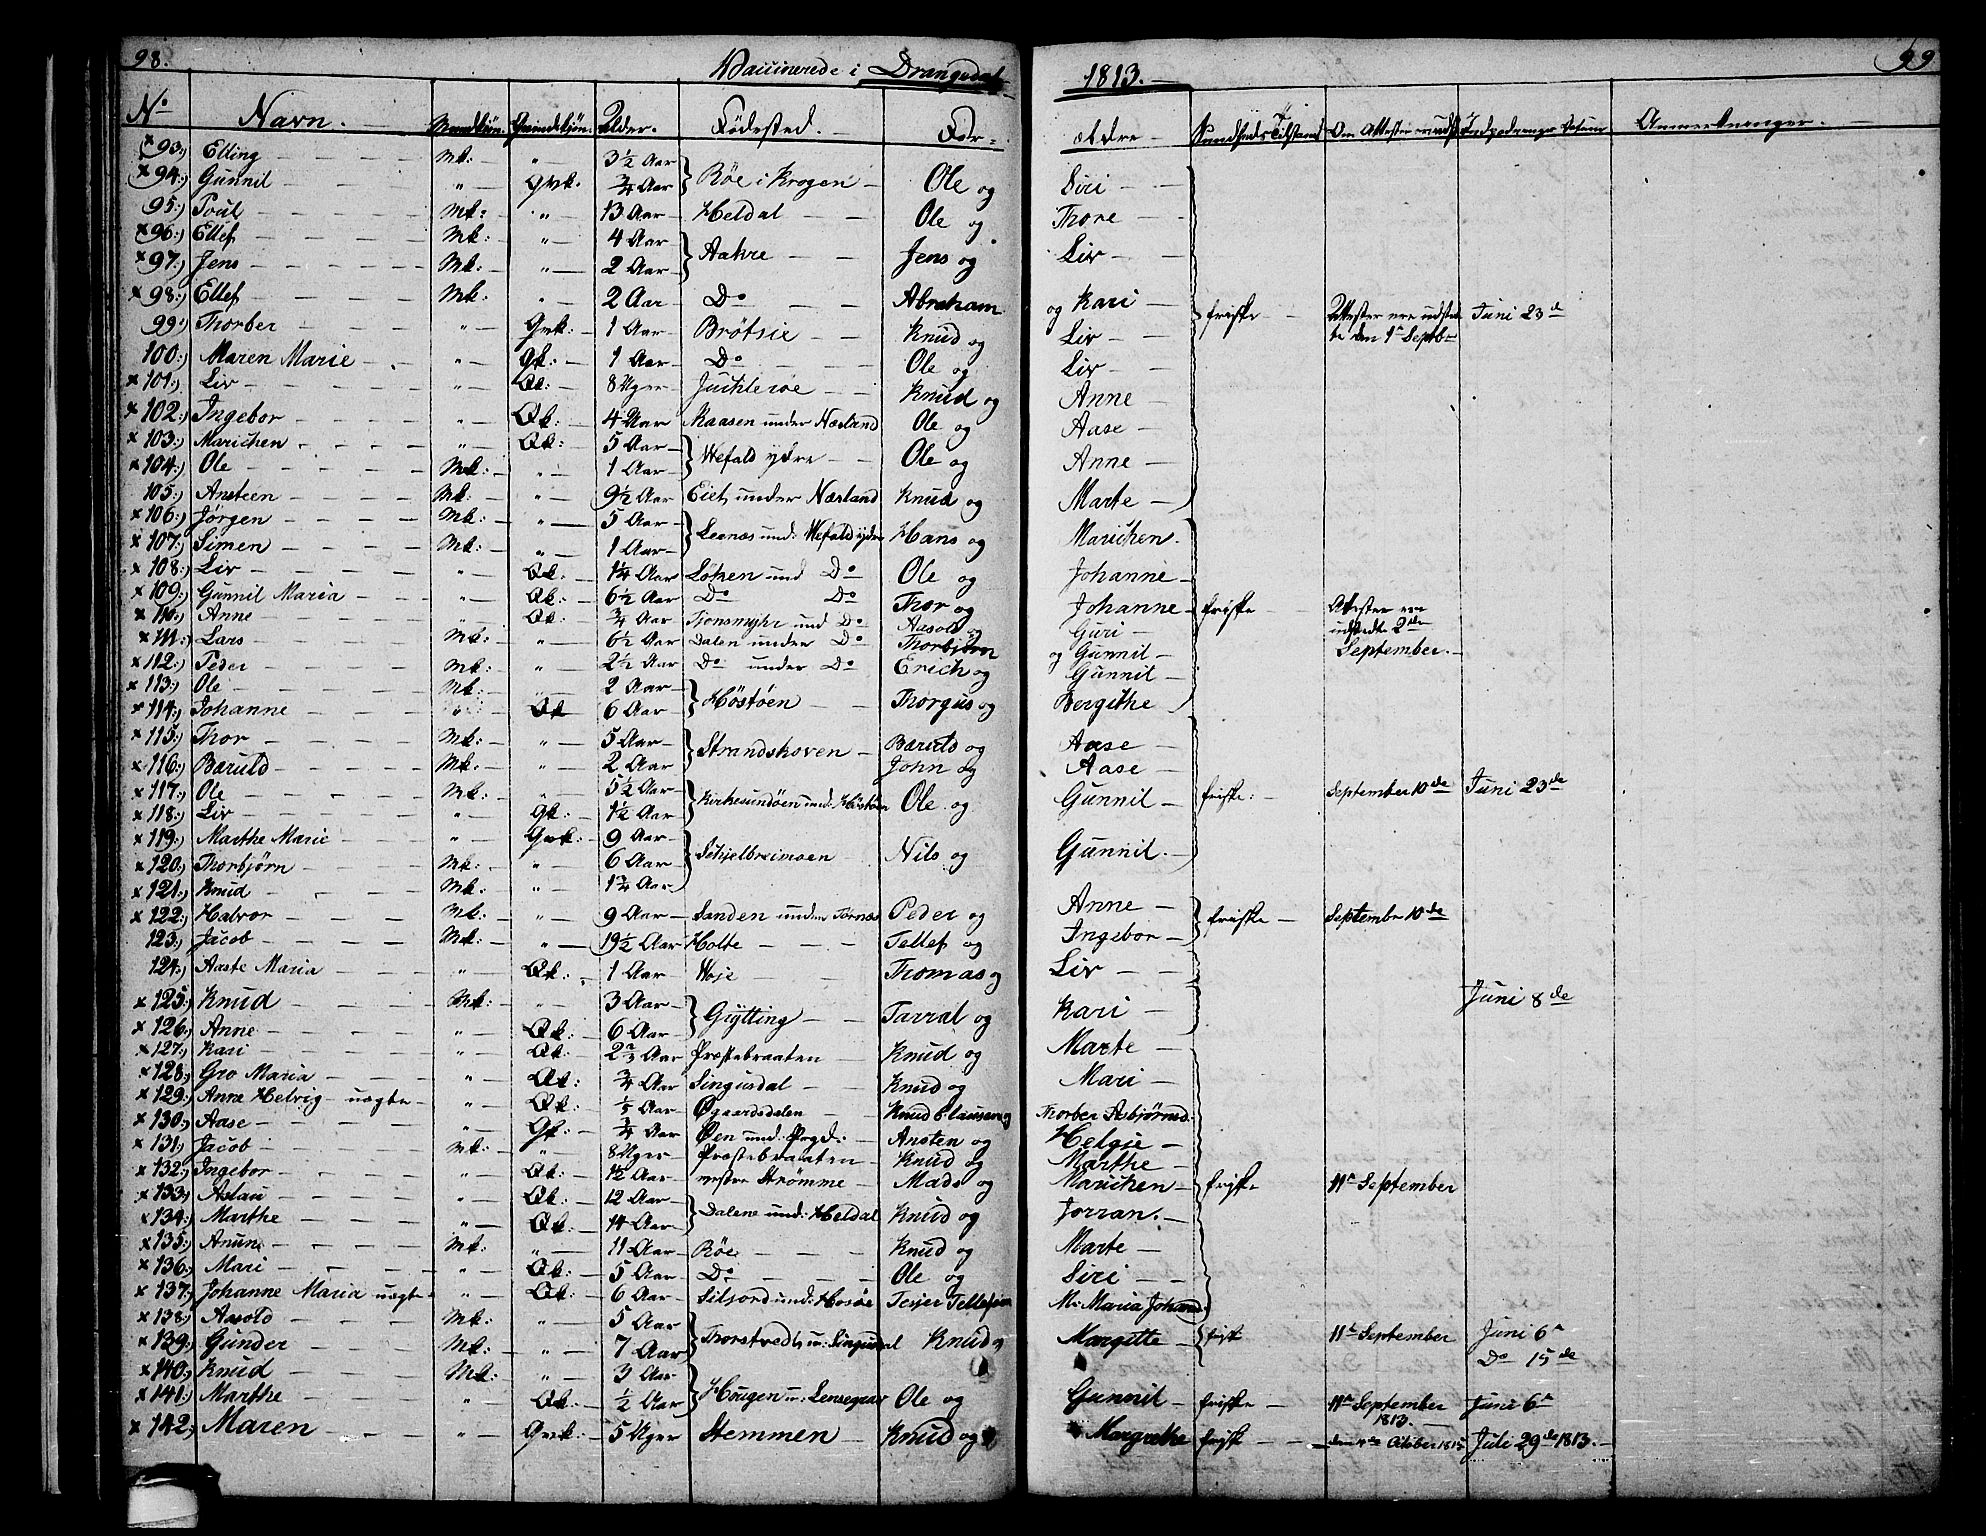 98.
Vaccinerede i Drangedal
1813.
99
No Navn. Mandkjøn. Qvindekjøn. Alder. Fødested. For-
ældre Sundheds Tilstand Om Attester ere udst Indpodnings Datum Anmerkninger.
x 93:) Elling Mk: " 3½ Aar } Røe i Krogen Ole og Siri
x 94:) Gunnil " Qvk. ¾ Aar
95:) Poul Mk: " 13 Aar Heldal Ole og Thore
x 96:) Ellef Mk: " 4 Aar } Aakre Jens og Liv
x 97:) Jens Mk: " 2 Aar
x 98:) Ellef Mk: " 2 Aar Do Abraham og Kari friske Attester ere udsted Juni 23de
te den 1e Septb
99:) Thorber " Qvk: 1 Aar Brøtsie Knud og Liv
100:) Maren Marie " Qk: 1 Aar Do Ole og Liv
x 101:) Liv " Qk: 8 Uger Knud og Anne
x 102:) Ingebor " Qk: 4 Aar Kaasen under Næsland Ole og Aase
x 103:) Marichen " Qk: 5 Aar } Wefald ydre Ole og Anne
x 104:) Ole Mk: " 1 Aar
105:) Ansteen Mk: " 9½ Aar Eiet under Næsland Knud og Marte
x 106:) Jørgen Mk: " 5 Aar } Leenæs und: Wefald ydre Hans og Marichen
x 107:) Simen Mk: " 1 Aar
x 108:) Liv " Qk: 1¼ Aar Løken und Do Ole og Johanne
x 109:) Gunnil Maria " Qk: 6½ Aar Do Do Thor og Johanne friske Attester ere
x 110:) Anne " Qk: ¾ Aar Tjonsmyhr und Do Aasold og Guri udstedte 2de
x 111:) Lars Mk: " 6½ Aar Dalen under Do Thorbjørn og Gunnil September.
x 112:) Peder Mk: " 2½ Aar Do under Do Erich og Gunnil
x 113:) Ole Mk: " 2 Aar } Høstøen Thorgus og Bergithe
x 114:) Johanne " Qk 6 Aar
x 115:) Thor Mk: " 5 Aar } Strandskoven Bæruld og Aase
x 116:) Bæruld Mk: " 2 Aar John og Aase
x 117:) Ole Mk: " 5½ Aar } Kirkesundøen und: Høstøen Ole og Gunnil friske: September 10de Juni 23de
x 118:) Liv " Qk: 1½ Aar
x 119:) Marthe Marie " Qvk: 9 Aar } Schjelbreimoen Nils og Gunnil.
x 120:) Thorbjørn Mk: " 6 Aar
x 121:) Knud Mk: " 1¾ Aar
x 122:) Halvor Mk: " 9 Aar Sanden under Tørnæs Peder og Anne friske Septembr 10de
123:) Jacob Mk: " 19½ Aar Holte Tellef og Ingebor
124:) Aaste Maria " Qk: 1 Aar Woje Thomas og Liv
x 125:) Knud Mk: " 3 Aar } Gjytting Tarral og Kari Juni 8de
x 126:) Anne " Qk: 6 Aar
x 127:) Kari " Qk: 2⅔ Aar Præstebraaten Knud og Marte
x 128:) Gro Maria " Qk: ¾ Aar Singusdal Knud og Mari
x 129:) Anne Helvig uægte " Qk: ⅓ Aar Øgaardsdalen Knud Clausen og Thorber Asbjørnsd:
x 130:) Aase " Qk: ¾ Aar Øen und: Prgd: Ansten og Helgie
x 131:) Jacob Mk: " 8 Uger Præstebraaten Knud og Marthe
x 132:) Ingebor " Qk: 1½ Aar nestre Strømme Mads og Marichen friske 11te September
x 133:) Aslau " Qk: 12 Aar } Dalene und: Heldal Knud og Jorran.
x 134:) Marthe " Qk: 14 Aar
x 135:) Anune Mk: " 11 Aar Røe Knud og Marte
x 136:) Mari " Qk: 5 Aar Do Ole og Siri
x 137:) Johanne Maria uægte " Qk: 6 Aar Siljord und: Hosøe Terjer Tellefsen M: Maria Johansd:
x 138:) Aasold Mk: " 5 Aar } Thorstvedt u: Singusdal Knud og Margitte frisk 11te September Juni 6te
x 139:) Gunder Mk: " 7 Aar Do 15de
x 140:) Knud Mk: " 3 Aar } Hougen u: Lensegrav Ole og Gunnil friske 11te September Juni 6te
x 141:) Marthe " Qk: ½ Aar 1813.
x 142:) Maren " Qvk: 5 Uger Stemmen Knud og Margrethe friske den 4de October 1815 Juli 29de 1813.